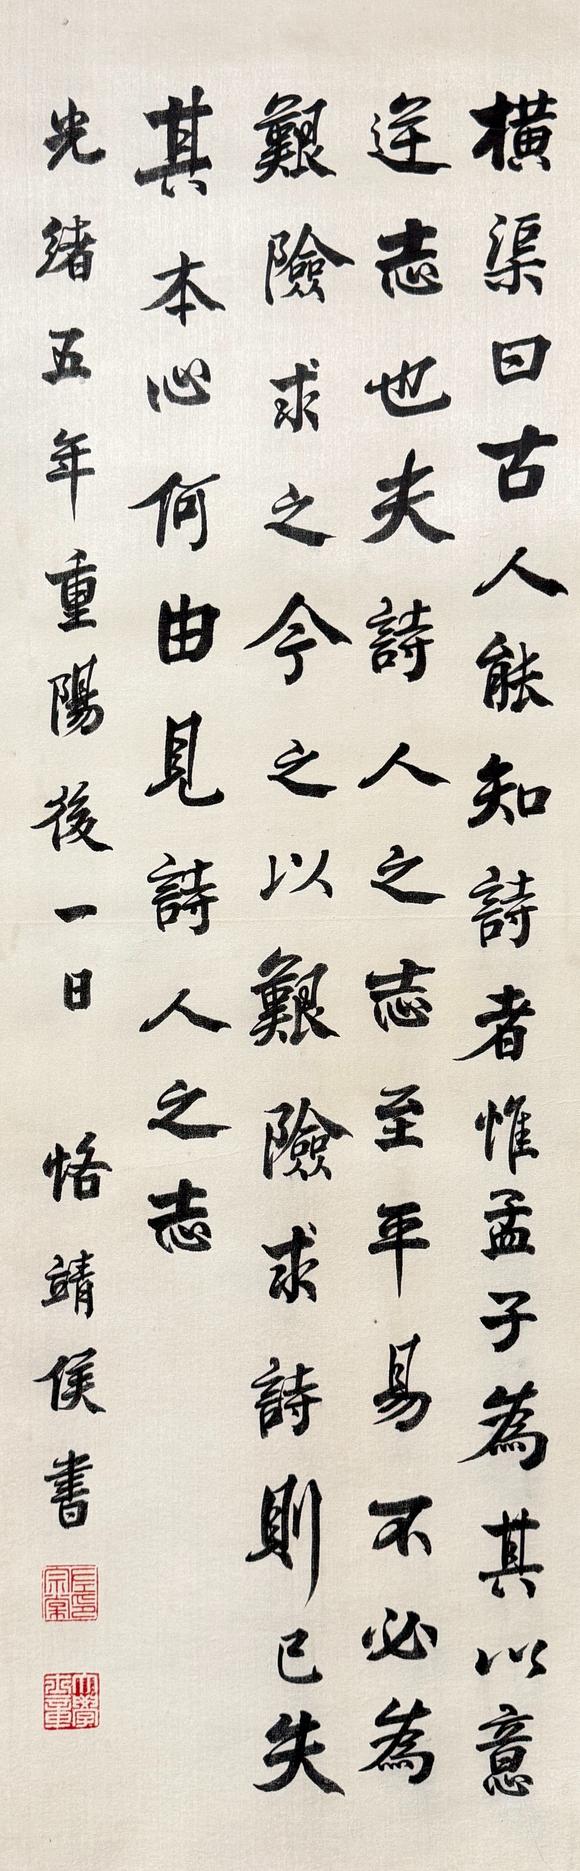 橫渠曰古人能知詩者惟孟子為其以意
逆志也夫詩人之志至平易不必為
艱險求之今之以艱險求詩則已失
其本心何由見詩人之志
光緒五年重陽後一日 恪靖侯書
左宗棠印
大學士章